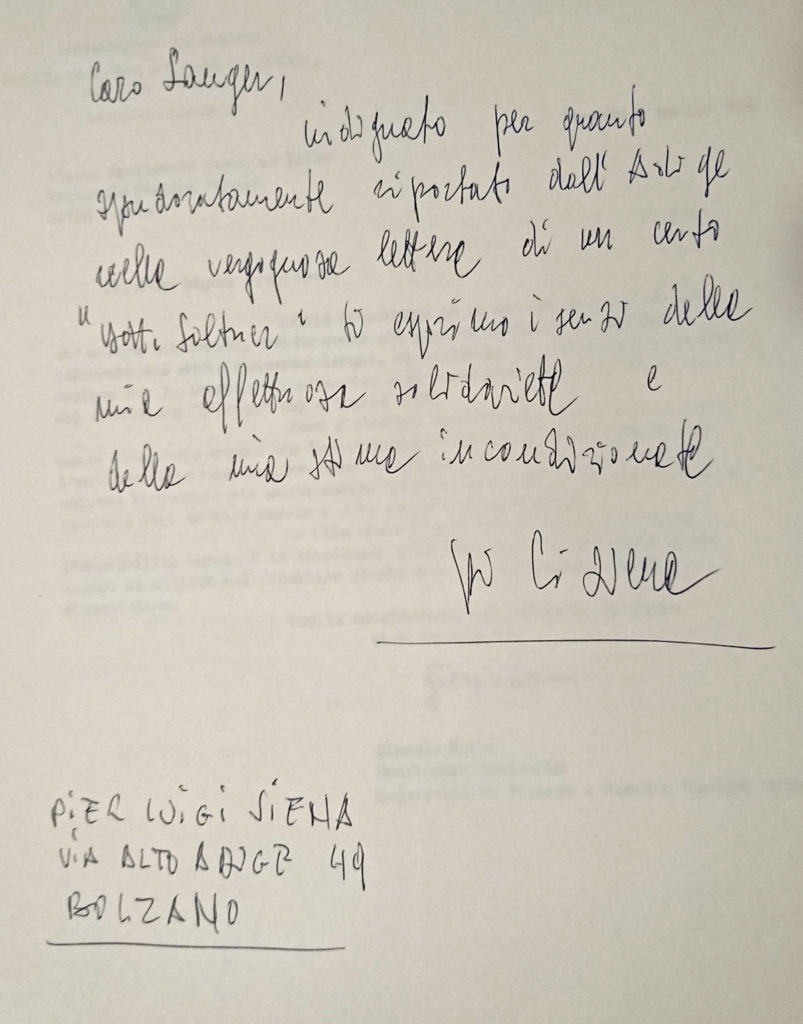 Caro Langer,
indignato per quanto
spudoratamente riportato dall'Adige
nella vergognosa lettera di un certo
"dott. Soltner" ti esprimo i sensi della
mia affettuosa solidarietà e
della mia stima incondizionata
PIER LUIGI SIENA
VIA ALTO ADIGE 49
BOLZANO